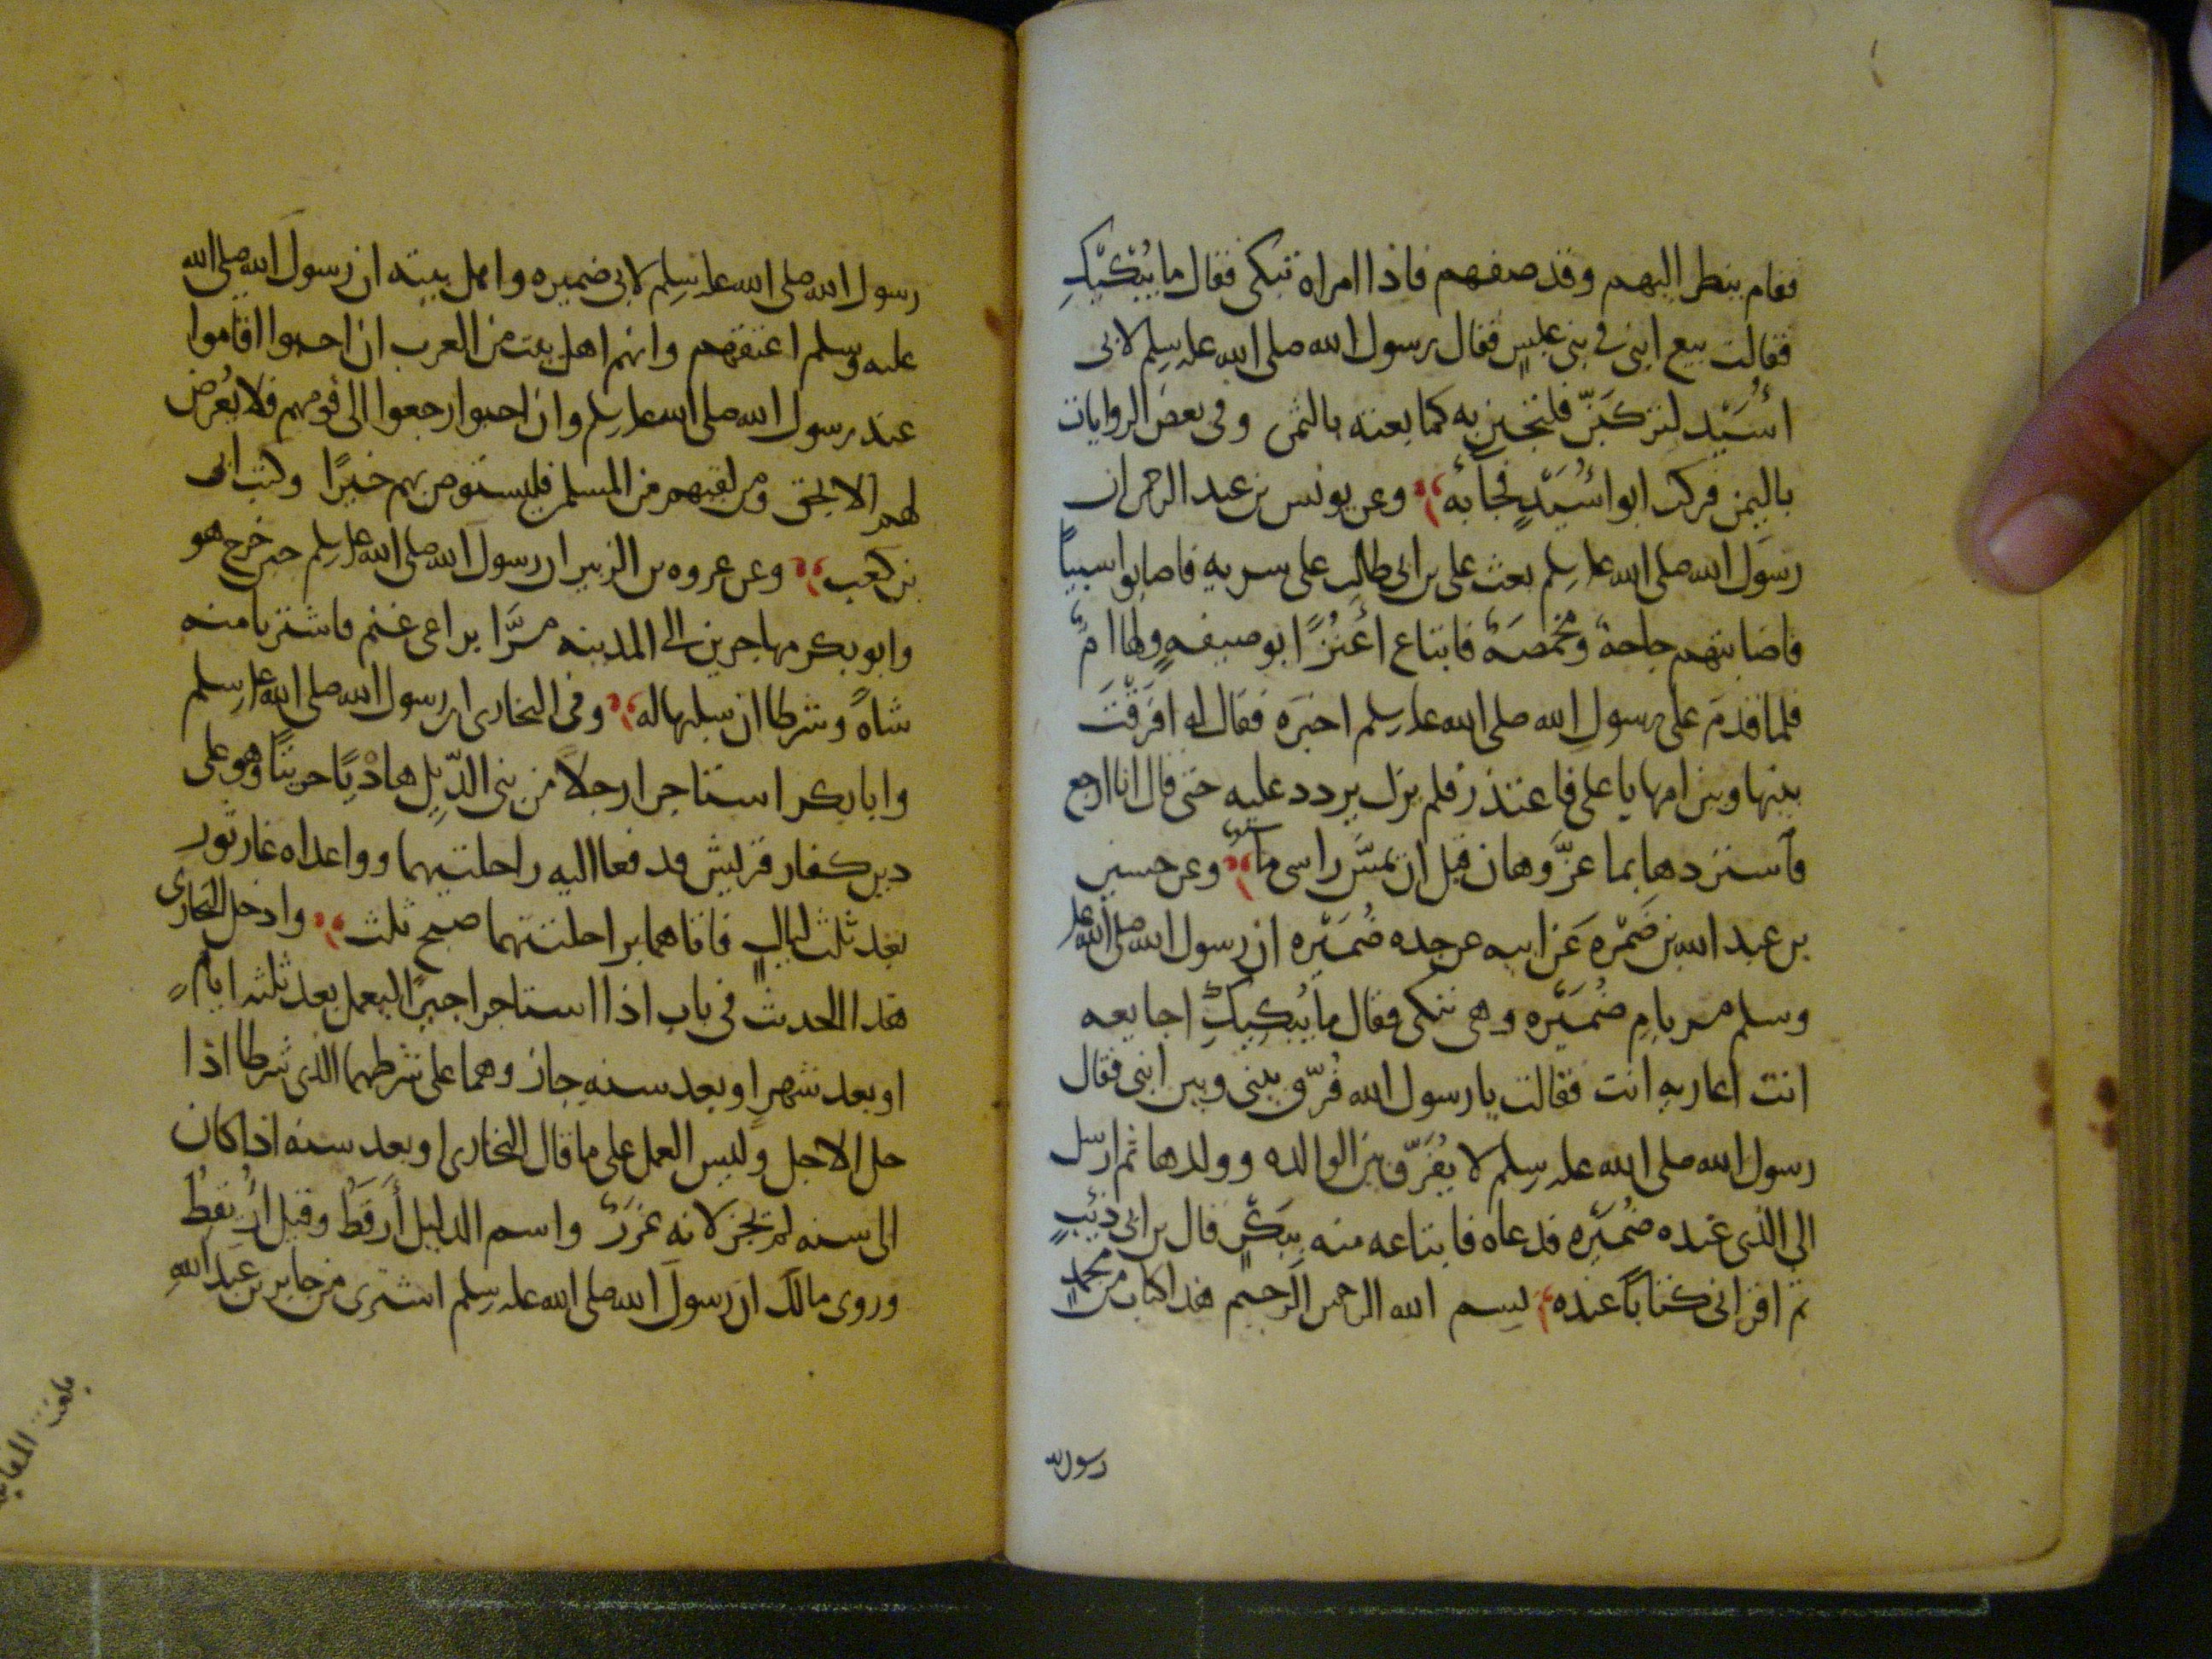 فقام ينظر اليهم وقد صفهم فاذا امراه تبكى فقال ما يُبْكيكِ
فقالت بيع ابنى فى بنى عبسٍ فقال رسول الله صلى الله عليه وسلم لابى
أُسَيْد لتركَبَنّ فلتجيئن به كما بعته بالثمن وفى بعض الروايات
باليمن فركب ابو اسُيْدٍ فجآءَ به وعن يونس بن عبد الرحمن ان
رسول الله صلى الله عليه وسلم بعث على بن ابى طالب على سريه فاصابوا سبياً
فاصابتهم حاجة ومخمصة فابتاع اعنُزًا بوصيفهٍ ولها امٌ
فلما قدم على رسول الله صلى الله عليه وسلم اخبره فقال له افرَقْتَ
بينها وبين امها يا على فاعتذر فلم يزل يردد عليه حتى قال انا ارجع
فاستردها بما عزَّ وهان قبل ان يمسَّ راسى مآء وعن حسين
بن عبد الله بن ضَمْرَه عن ابيه عن جده ضُمَيْره ان رسول الله صلى الله عليه
وسلم مر بام ضُمَيْره وهى تبكى فقال ما يُبْكِيكِ اجايعه
انت اعاريه انت فقالت يا رسول الله فُرّق بينى وبين ابنى فقال
رسول الله صلى الله عليه وسلم لا يفَرَّق بين الوالده وولدها ثم ارسل
الى الذى عنده ضُمَيْره فدعاه فابتاعه منه ببَكْرٍ قال بن ابى ذئبٍ
ثم اقرانى كتاباً عنده بسم الله الرحمن الرحيم هذا كتاب من محمدٍ
رسول الله
رسول الله صلى الله عليه وسلم لابى ضميره واهل بيته ان رسول الله صلى الله
عليه وسلم اعتقهم وانهم اهل بيت من العرب ان احبوا اقاموا
عند رسول الله صلى الله عليه وسلم وان احبوا رجعوا الى قومهم فلا يُعْرض
لهم الا بحق ومن لقيهم من المسلمين فليستوص بهم خيرًا وكتب ابى
بن كعب وعن عروه بن الزبير ان رسول الله صلى الله عليه وسلم حين خرج هو
وابو بكر مهاجرين الى المدينه مرَّا براعى غنم فاشتريا منه
شاةً وشرطا ان سلبها له وفى البخارى ان رسول الله صلى الله عليه وسلم
وابا بكر استاجرا رجلاً من بنى الدّيِل هادِياً خريتًا وهو على
دين كفار قريش فدفعا اليه راحلتيهما وواعداه غار ثور
بعد ثلث ليالٍ فاتاهما براحلتيهما صبح ثلث وادخل البخارى
هذا الحديث فى باب اذا استاجر اجيرًا ليعمل بعد ثلثه ايام
او بعد شهرٍ او بعد سنه جاز وهما على شرطهما الذى شرطا اذا
حل الاجل وليس العمل على ما قال البخارى او بعد سنه اذا كان
الى سنه لم يجز لانه غرَرٌ واسم الدليل أَرقَطُ وقيل ارُيقطُ
وروى مالك ان رسول الله صلى الله عليه وسلم اشترى من جابر بن عبد الله
بلغت